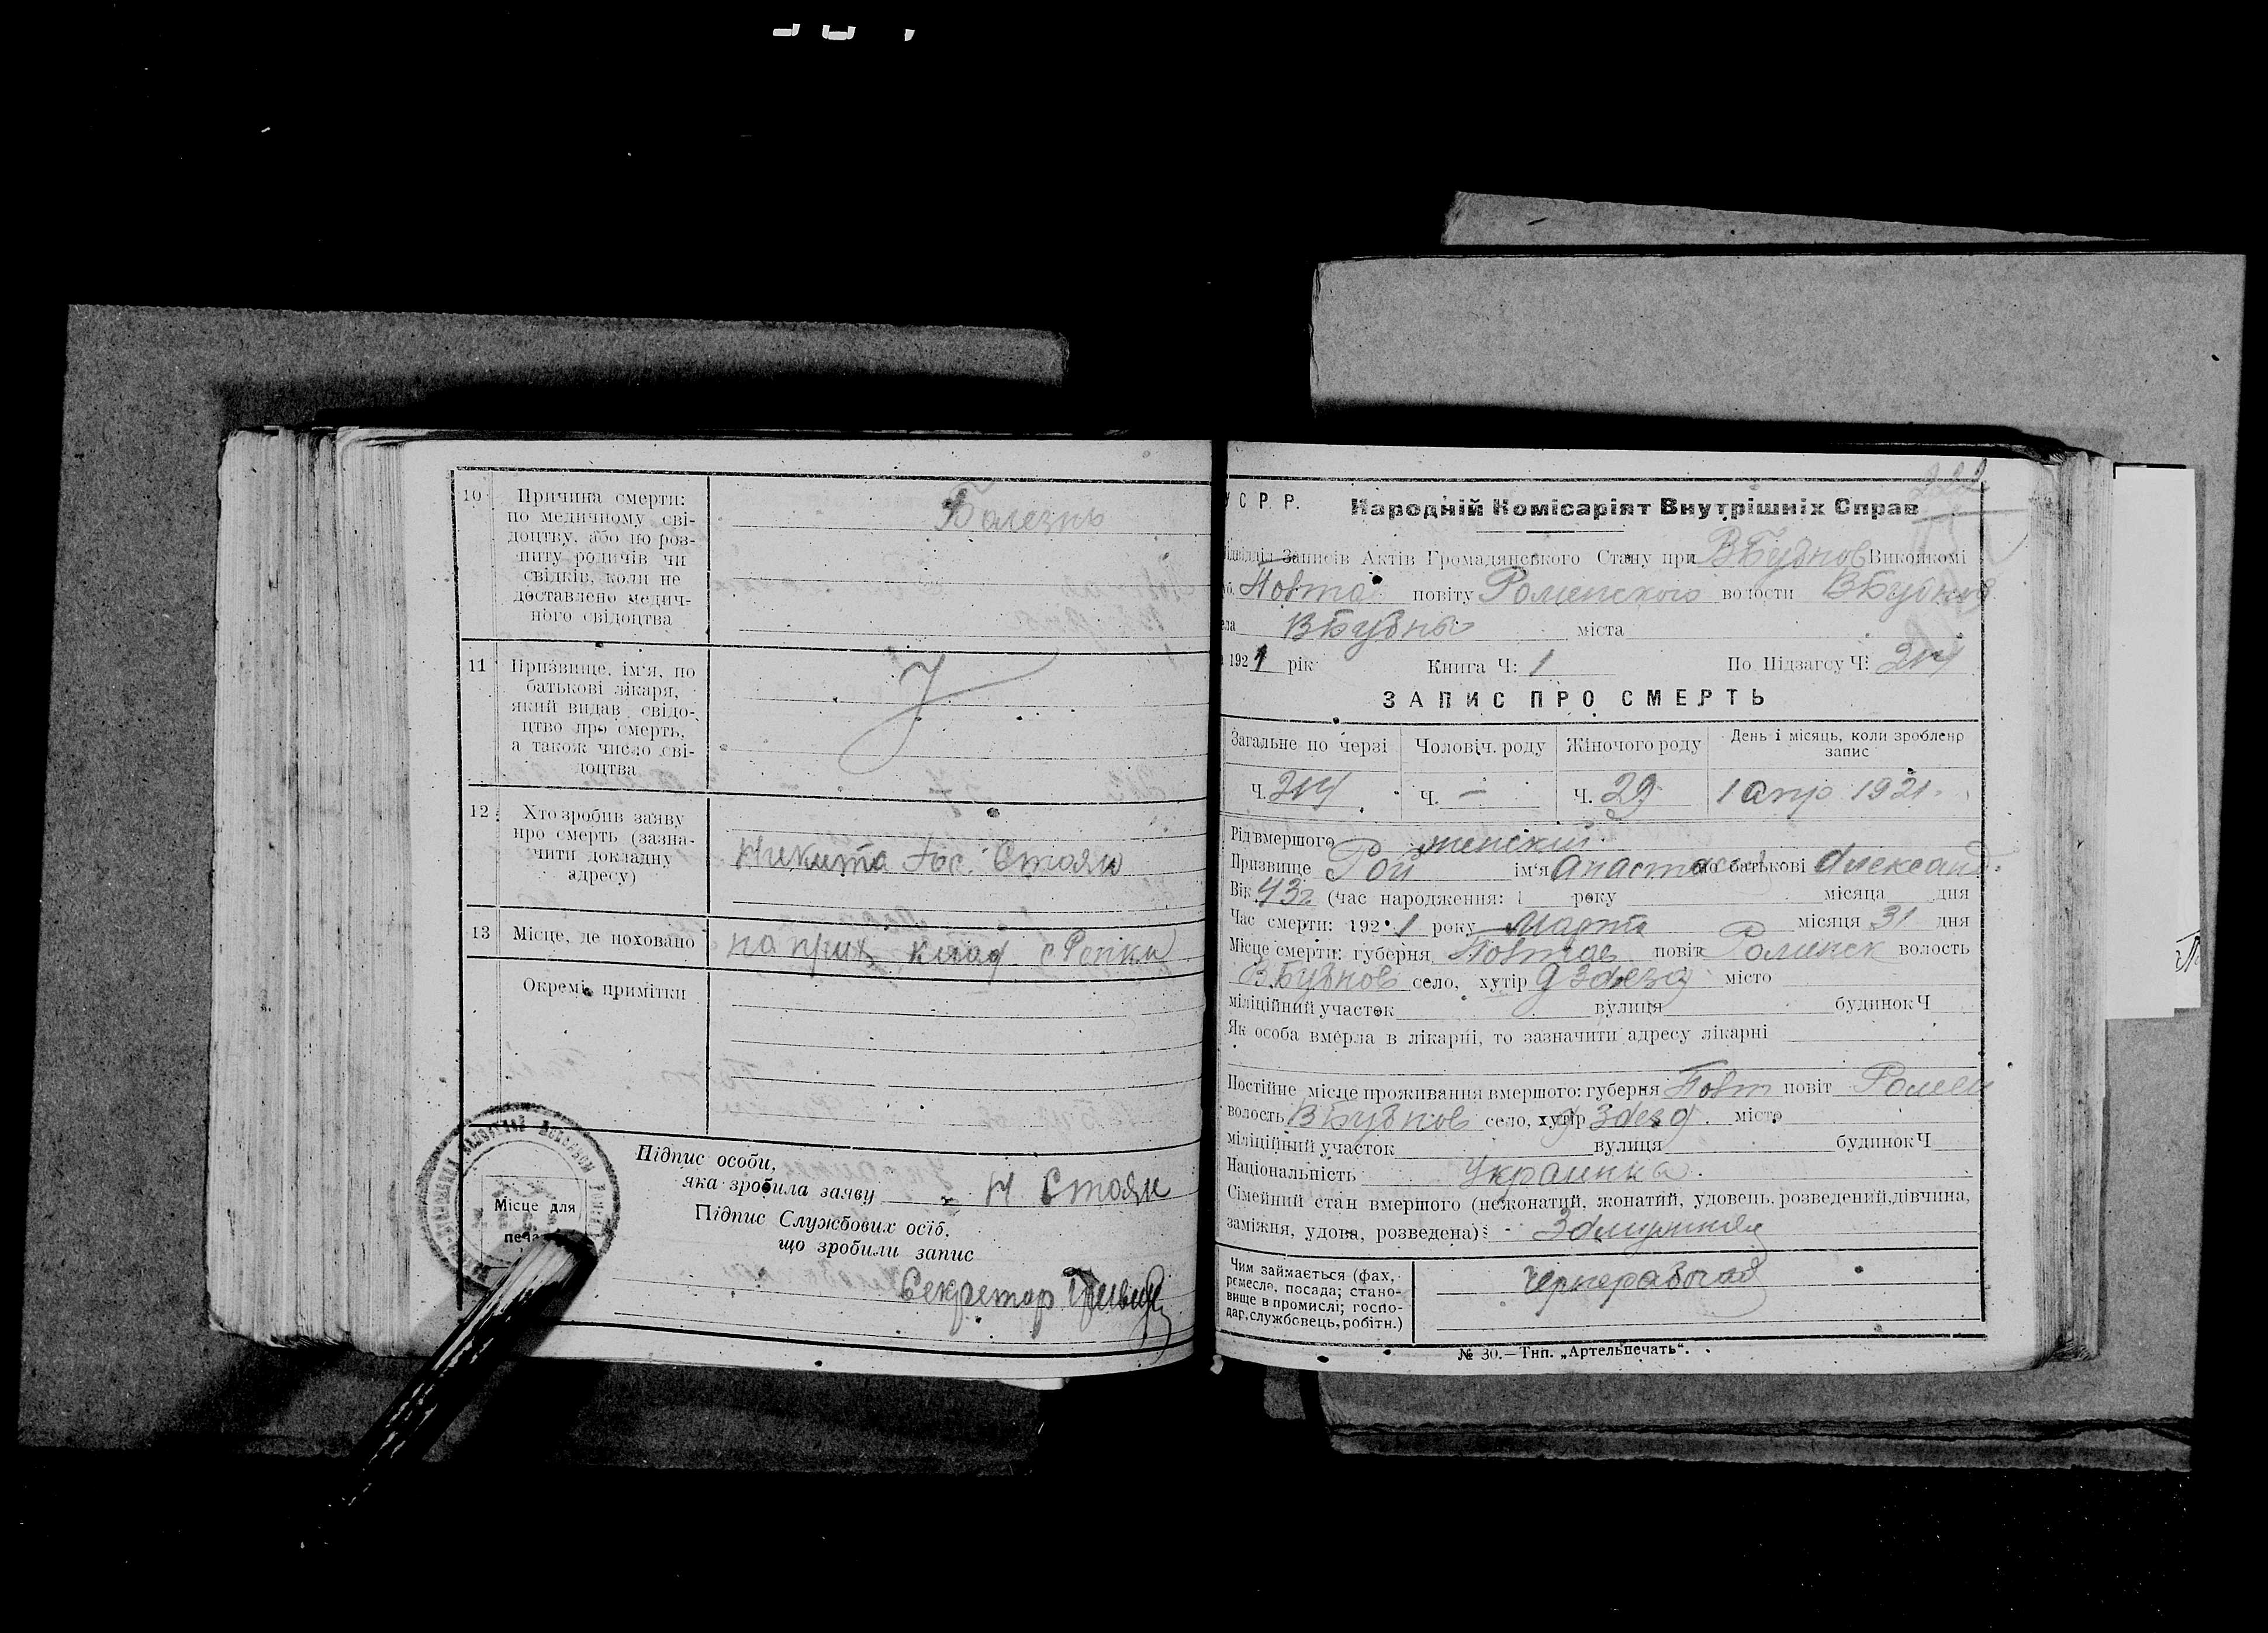 10
Причина смерти:
по медичному сві-
доцтву, або по роз-
питу родичів чи
свідків, коли не
доставлено медич-
ного свідоцтва
Болезнь
11
Призвище, ім'я, по
батькові лікаря,
який видав свідо-
цтво про смерть,
а також число сві-
доцтва
12
Хто зробив заяву
про смерть (зазна-
чити докладну
адресу)
Никита Стоян
13
Місце, де поховано
на прих клад с Репки
Окремі примітки
Місце для
печа
Підпис особи,
яка зробила заяву Н Стоян
Підпис Службових осіб,
що зробили запис
Секретар
222
У С Р. Р. Народній Комісаріят Внутрішніх Справ
Записів Актів Громадянського Стану при ВБубнов Виконкомі
Полта повіту Роменского волости ВБубнов
ВБубны міста
192 1 рік Книга Ч: 1 По Підзагсу Ч: 214
ЗАПИС ПРО СМЕРТЬ
Загальне по черзі
Чоловіч. роду
Жіночого роду
День і місяць, коли зроблено
запис
Ч. 214
Ч. —
Ч. 29
1 апр 1921
Рід вмершого женский
Призвище Рой ім'я Анастасия по батькові Александ.
Вік 43г (час народження: 1 року місяца дня
Час смерти: 192 1 року Марта місяця 31 дня
Місце смерти: губерня Полтав повіт Роменск волость
В.Бубнов село, хутір місто
міліційний участок вулиця будинок Ч
Як особа вмерла в лікарні, то зазначити адресу лікарні
Постійне місце проживання вмершого: губерня Полт повіт Ромен
волость ВБубнов село, хутір місто
міліційний участок вулиця будинок Ч
Національність Украинка.
Сімейний стан вмершого (нежонатий, жонатий, удовець, розведений, дівчина,
заміжня, удова, розведена): Замужняя
Чим займається (фах,
ремесла, посада; стано-
вище в промислі; госпо-
дар, службовець, робітн.)
Чернорабочая
№ 30.—Тип. „Артельпечать".